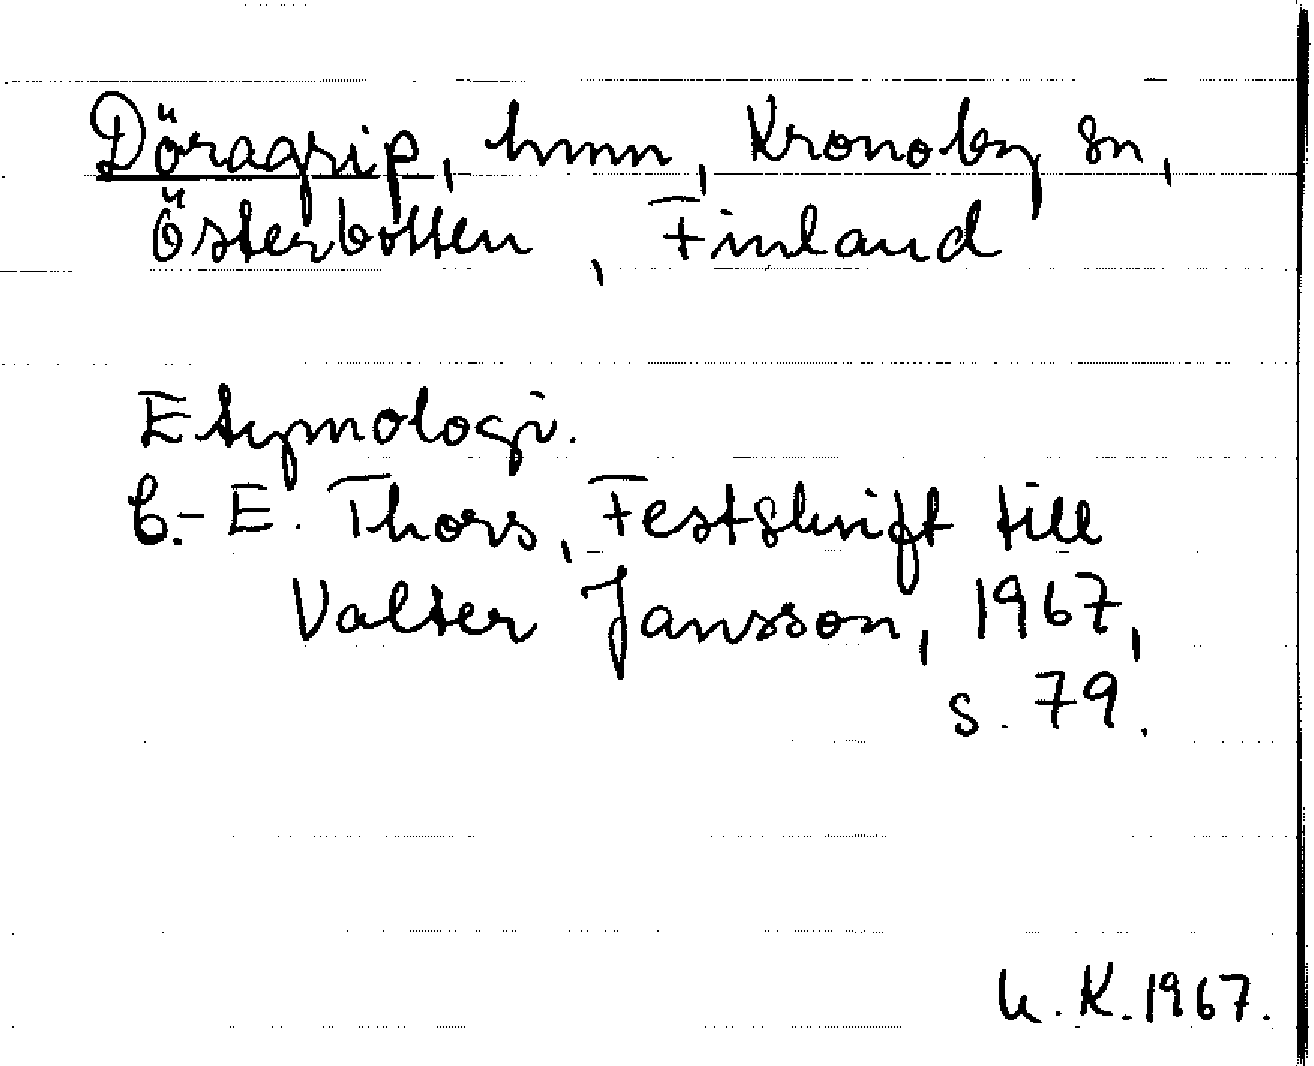 Döragrip, hmn, Kronoby sn,
Österbotten, Finland
Etymologi.
C.-E. Thors, Festskrift till
Valter Jansson, 1967,
s. 79.
K. 1967.